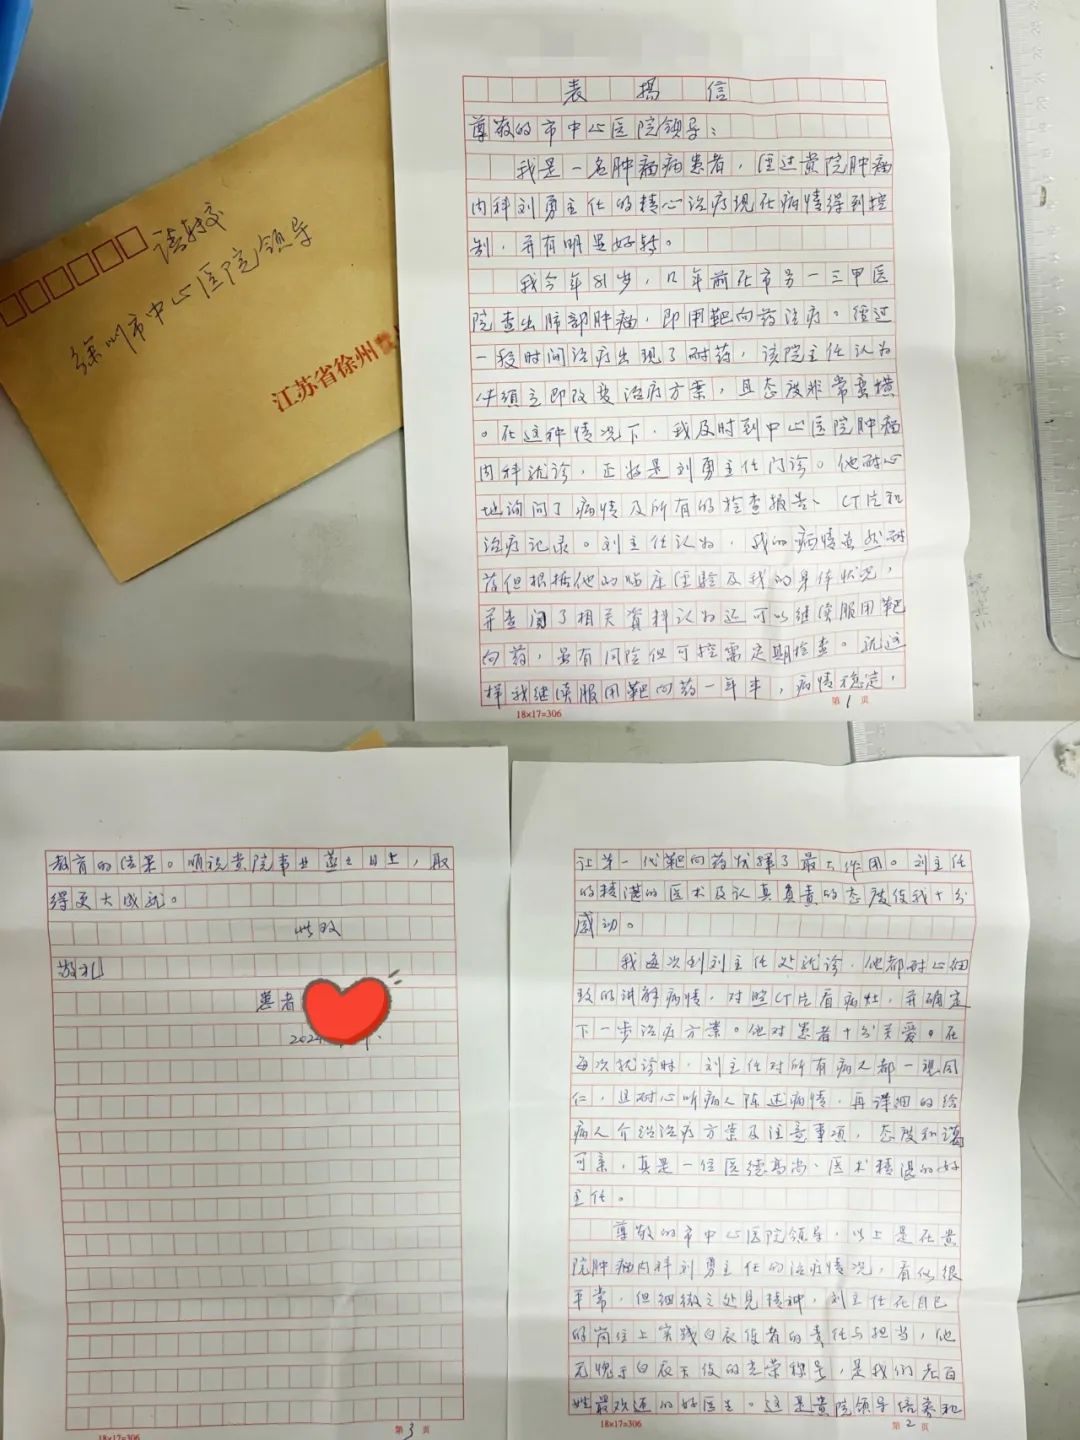 请转交
徐州市中心医院领导
江苏省徐州
表 揚 信
尊敬的市中心医院领导：
我是一名肿瘤病患者，经过贵院肿瘤
内科刘勇主任的精心治疗现在病情得到控
制，并有明显好转。
我今年81岁，几年前在市另一三甲医
院查出肺部肿瘤，即用靶向药治疗。经过
一段时间治疗出现了耐药，该院主任认为
必须立即改变治疗方案，且态度非常蛮横
。在这种情况下，我及时到中心医院肿瘤
内科就诊，正好是刘勇主任门诊。他耐心
地询问了病情及所有的检查报告、CT片和
治疗记录。刘主任认为，我的病情虽然耐
药但根据他的临床经验及我的身体状况，
并查阅了相关资料认为还可以继续服用靶
向药，虽有风险但可控需定期检查。就这
样我继续服用靶向药一年半，病情稳定，
18×17=306
第1页
让第一代靶向药发挥了最大作用。刘主任
的精湛的医术及认真负责的态度使我十分
感动。
我每次到刘主任处就诊，他都耐心细
致的讲解病情，对照CT片看病灶，并确定
下一步治疗方案。他对患者十分关爱。在
每次就诊时，刘主任对所有病人都一视同
仁，且耐心听病人陈述病情，再详细的给
病人介绍治疗方案及注意事项，态度和蔼
可亲，真是一位医德高尚、医术精湛的好
主任。
尊敬的市中心医院领导，以上是在贵
院肿瘤内科刘勇主任的治疗情况，看似很
平常，但细微之处见精神，刘主任在自己
的岗位上实践白衣使者的责任与担当，他
无愧于白衣天使的光荣称号，是我们老百
姓最欢迎的好医生。这是贵院领导培养和
18×17=306
第2页
教育的结果。顺祝贵院事业蒸蒸日上，取
得更大成就。
此致
敬礼
患者
202
18×17=306
第3页